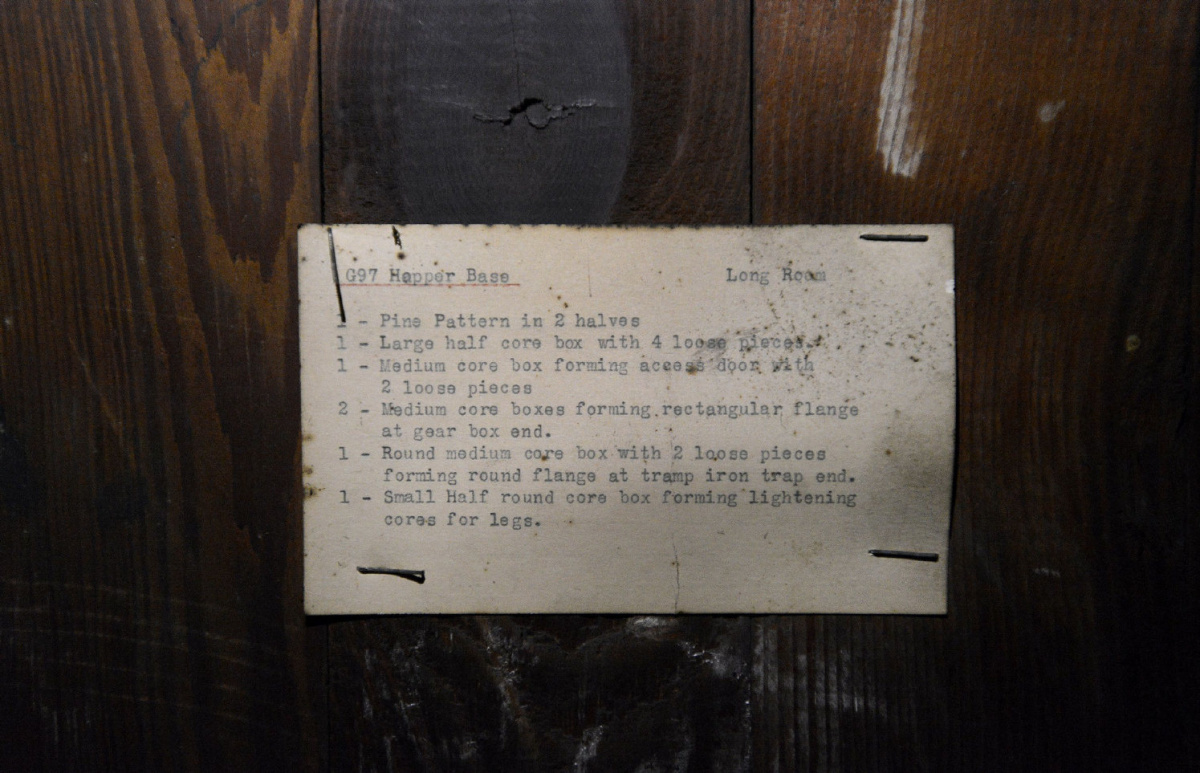 G97 Hopper Base Long Room
1 - Pine Pattern in 2 halves
1 - Large half core box with 4 loose pieces.
1 - Medium core box forming access door with
2 loose pieces
2 - Medium core boxes forming rectangular flange
at gear box end.
1 - Round medium core box with 2 loose pieces
forming round flange at tramp iron trap end.
1 - Small Half round core box forming lightening
cores for legs.